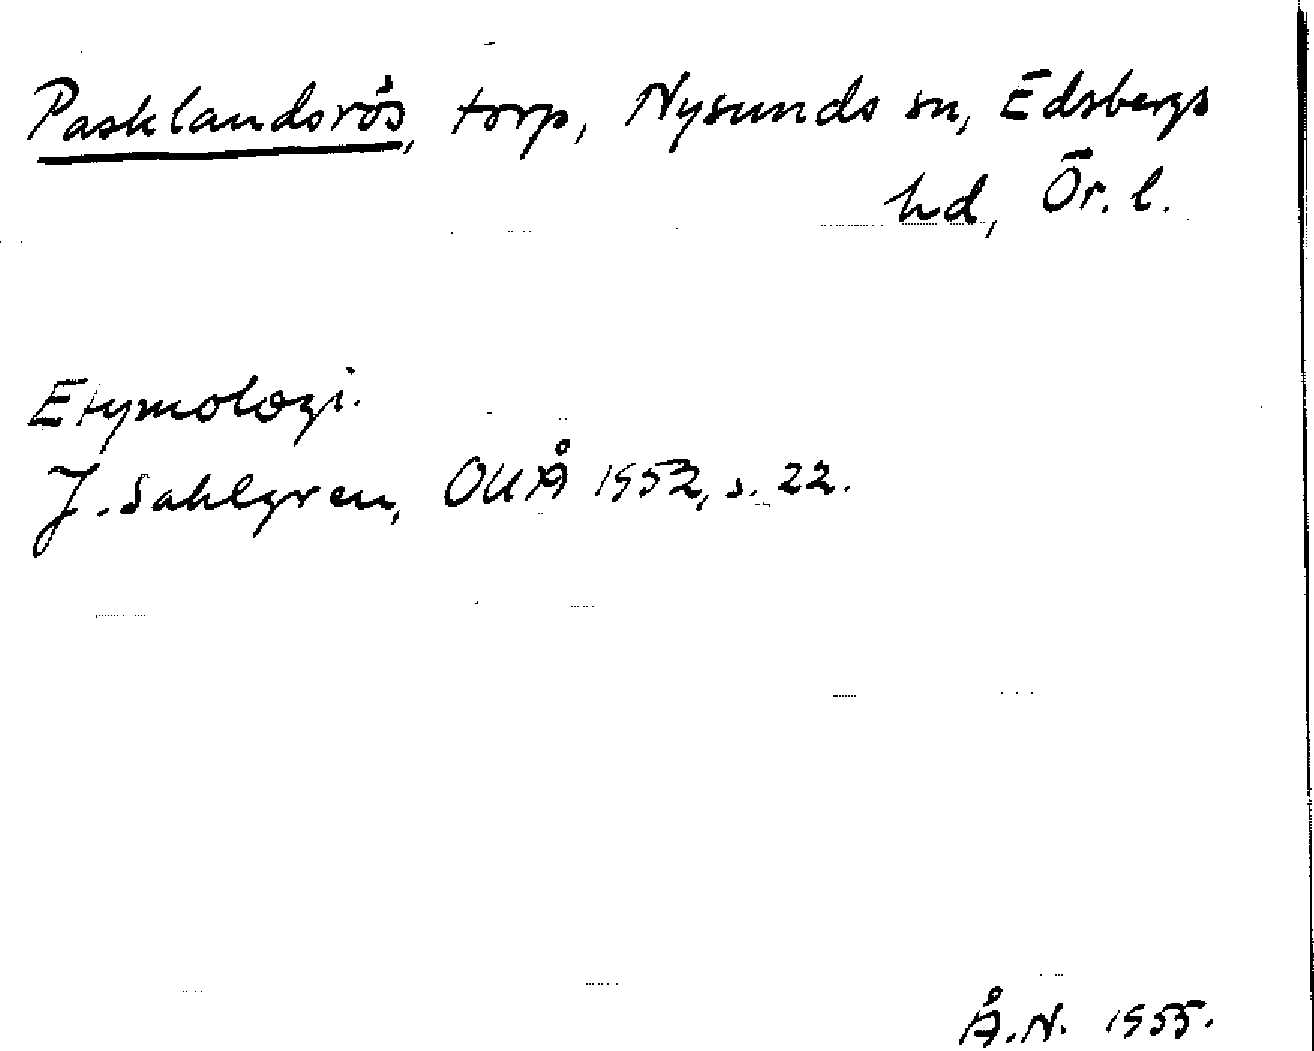 Pasklandsrös, torp, Nysunds sn, Edsbergs
hd, Ör. l.
Etymologi.
J. Sahlgren, OUÅ 1952, s. 22.
Å.N. 1955.